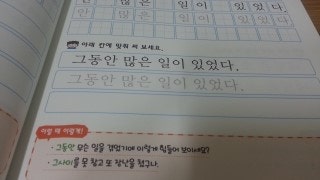 많 은 일 이 있 었 다 .
안 많 은 일 이 있 었 다 .
아래 칸에 맞춰 써 보세요.
그동안 많은 일이 있었다.
그동안 많은 일이 있었다.
이럴 때 이렇게!
· 그동안 무슨 일을 겪었기에 이렇게 힘들어 보이세요?
· 그사이를 못 참고 또 장난을 쳤구나.